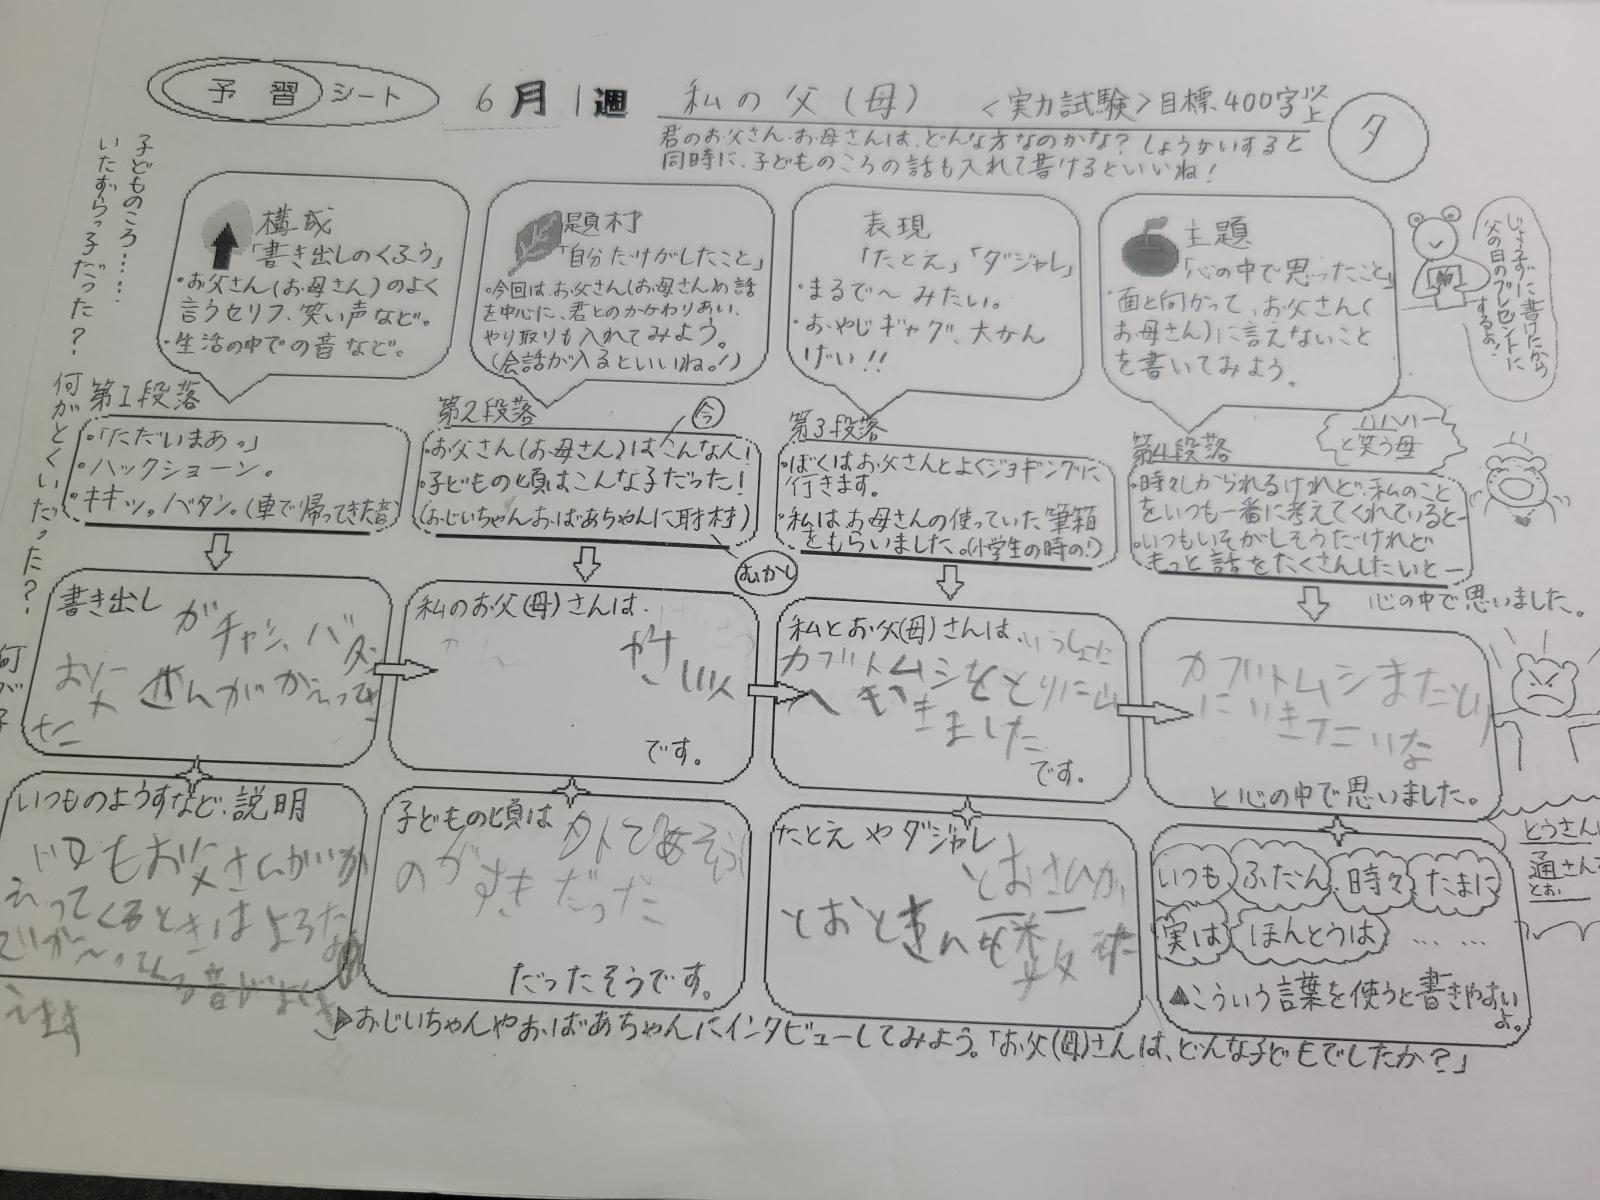 予習シート
6月1週
私の父(母)
<実力試験>目標400字以上
夕
君のお父さん・お母さんは、どんな方なのかな？しょうかいすると
同時に、子どものころの話も入れて書けるといいね！
子どものころ……
いたずらっ子だった？
何がとくいだった？
構成
「書き出しのくふう」
・お父さん(お母さん)のよく
言うセリフ、笑い声など。
・生活の中での音など。
題材
「自分だけがしたこと」
・今回は、お父さん(お母さん)の話
を中心に、君とのかかわりあい、
やり取りも入れてみよう。
(会話が入るといいね。!)
表現
「たとえ」「ダジャレ」
・まるで〜みたい。
・おやじギャグ、大かん
げい!!
主題
「心の中で思ったこと」
・面と向かって、お父さん(
お母さん)に言えないこと
を書いてみよう。
じょうずに書けたから
父の日のプレゼントに
するよ!
第1段落
・「ただいまあ。」
・ハックショーン。
・キキッ。バタン。(車で帰ってきた音)
第2段落
今
・お父さん(お母さん)はこんな人!
・子どもの頃はこんな子だった!
(おじいちゃんおばあちゃんに取材)
むかし
第3段落
・ぼくはお父さんとよくジョギングに
行きます。
・私はお母さんの使っていた筆箱
をもらいました。(小学生の時の!)
第4段落
・時々しかられるけれど、私のこと
をいつも一番に考えてくれていると—
・いつもいそがしそうだけれど
もっと話をたくさんしたいと—
心の中で思いました。
ハハハー
と笑う母
書き出し
ガチャン、バタ
お父さんがかえってき
た
私のお父(母)さんは、
です。
私とお父(母)さんは、いっしょに
カブトムシをとりに山
へいきました
です。
カブトムシまたとり
にいきたいな
と心の中で思いました。
いつものようすなど、説明
いつもお父さんがか
えってくるときは
子どもの頃は
外であそぶ
のがすきだった
だったそうです。
たとえやダジャレ
とおさんが
いつも
ふだん
時々
たまに
実は
ほんとうは
……
▲こういう言葉を使うと書きやすい
よ。
とうさん
通さん
とお
▶おじいちゃんやおばあちゃんにインタビューしてみよう。「お父(母)さんは、どんな子どもでしたか？」